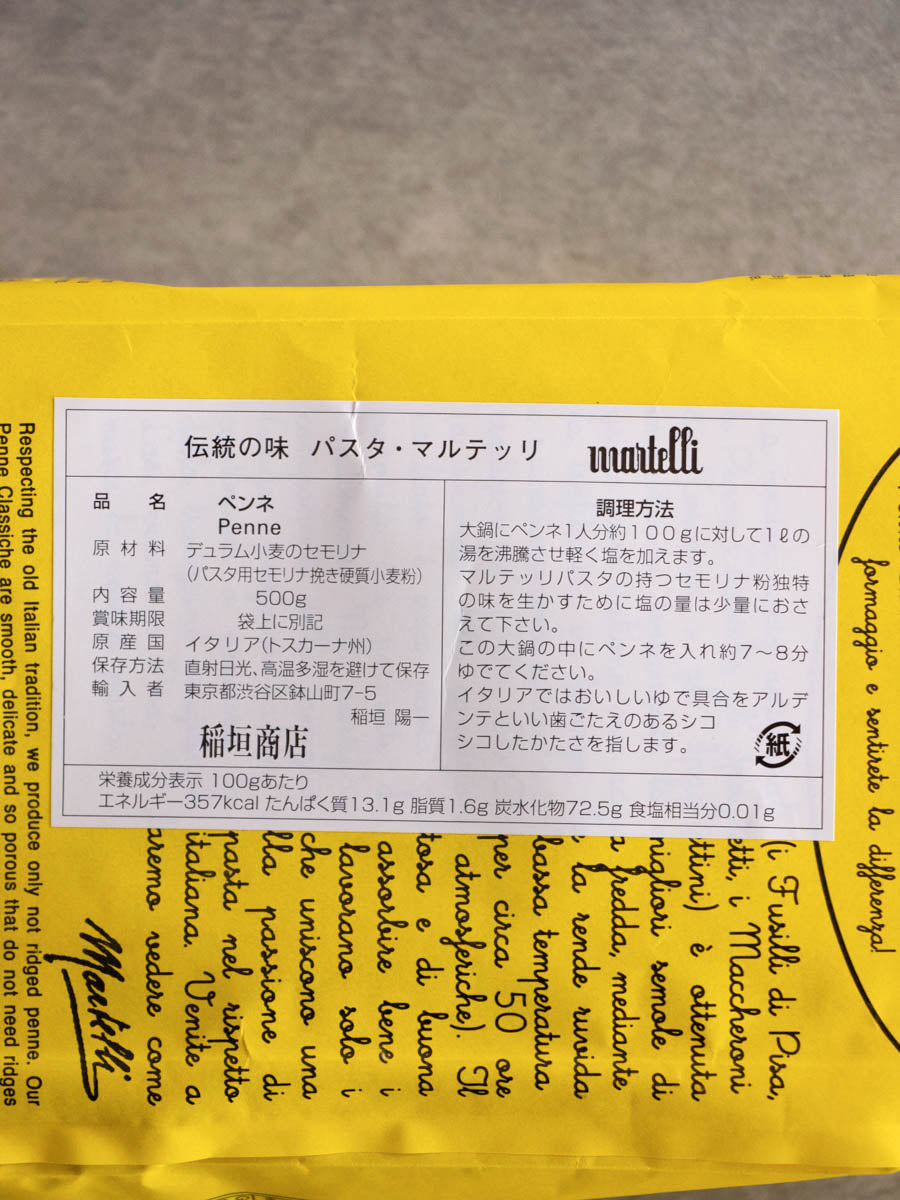 伝統の味 パスタ・マルテッリ martelli
品名 ペンネ
Penne
原材料 デュラム小麦のセモリナ
(パスタ用セモリナ挽き硬質小麦粉)
内容量 500g
賞味期限 袋上に別記
原産国 イタリア(トスカーナ州)
保存方法 直射日光、高温多湿を避けて保存
輸入者 東京都渋谷区鉢山町7-5
稲垣 陽一
稲垣商店
調理方法
大鍋にペンネ1人分約100gに対して1ℓの
湯を沸騰させ軽く塩を加えます。
マルテッリパスタの持つセモリナ粉独特
の味を生かすために塩の量は少量におさ
えて下さい。
この大鍋の中にペンネを入れ約7〜8分
ゆでてください。
イタリアではおいしいゆで具合をアルデ
ンテといい歯ごたえのあるシコ
シコしたかたさを指します。
紙
栄養成分表示 100gあたり
エネルギー357kcal たんぱく質13.1g 脂質1.6g 炭水化物72.5g 食塩相当分0.01g
formaggio e sentirete la differenza!
(i Fusilli di Pisa,
etti, i Maccheroni
ttini) è ottenuta
migliori semole di
fredda, mediante
la rende ruvida
bassa temperatura
per circa 50 ore
atmosferiche). Il
tosa e di buona
assorbire bene i
lavorano solo i
che uniscono una
lla passione di
pasta nel rispetto
italiana. Venite a
aremo vedere come
Martelli
Respecting the old Italian tradition, we produce only not ridged penne. Our
Penne Classiche are smooth, delicate and so porous that do not need ridges